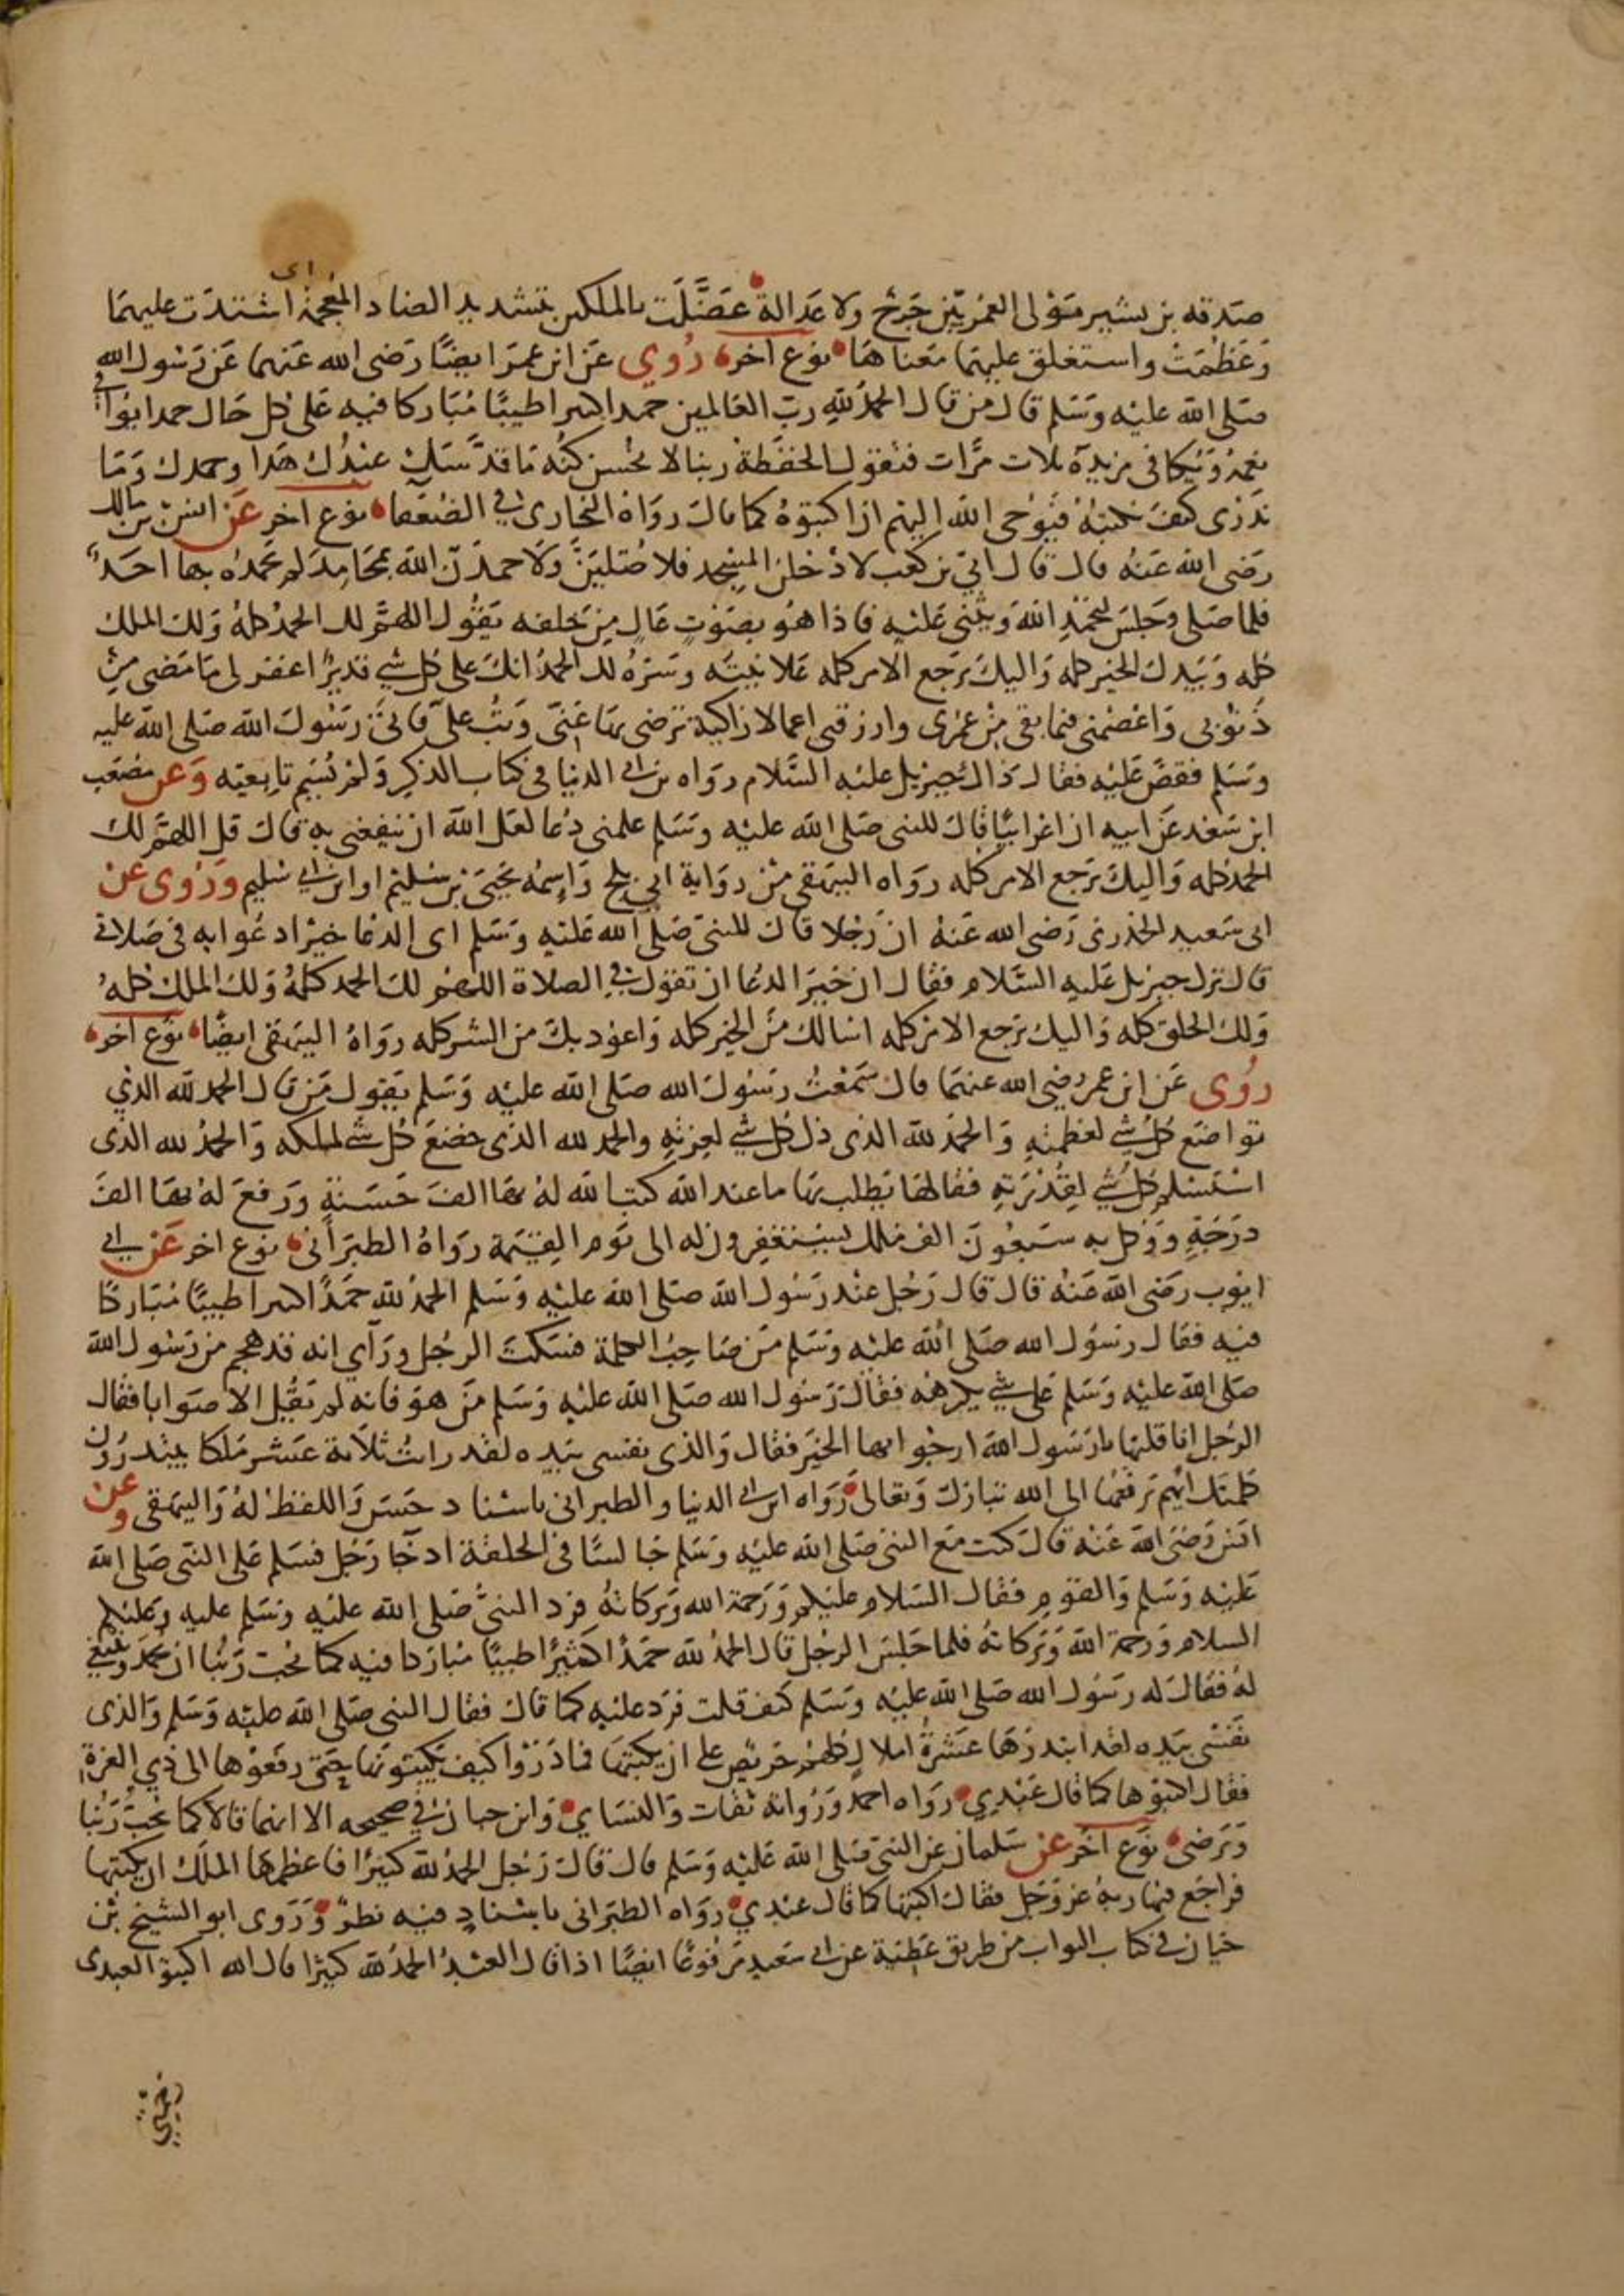 اى
صدقه بن بشير مولى العمريين جرح ولا عدالة عضلت بالملكين بتشديد الضاد المعجمة اشتدت عليهما
وعظمت واستغلق عليهما معناها نوع اخر روي عن ابن عمر ايضا رضى الله عنهما عن رسول الله
صلى الله عليه وسلم قال من قال الحمد لله رب العالمين حمدا كثيرا طيبا مباركا فيه على كل حال حمدا يوافى
نعمه ويكافى مزيده ثلاث مرات فتقول الحفظة ربنا لا نحسن كنه ما قدسك عبدك هذا وحمدك وما
ندرى كيف نكتبه فيوحى الله اليهم ان اكتبوه كما قال رواه البخارى فى الضعفا نوع اخر عن انس بن مالك
رضى الله عنه قال قال ابي بن كعب لادخلن المسجد فلاصلين ولاحمدن الله بمحامد لم يحمده بها احد
فلما صلى وجلس ليحمد الله ويثنى عليه فاذا هو بصوت عال من خلفه يقول اللهم لك الحمد كله ولك الملك
كله وبيدك الخير كله واليك يرجع الامر كله علانيته وسره لك الحمد انك على كل شي قدير اغفر لى ما مضى من
ذنوبى واعصمنى فيما بقى من عمرى وارزقنى اعمالا زاكية ترضى بها عنى وتب علي فاتى رسول الله صلى الله عليه
وسلم فقص عليه فقال ذاك جبريل عليه السلام رواه بن ابى الدنيا فى كتاب الذكر ولم يسم تابعيه وعن مصعب
ابن سعد عن ابيه ان اعرابيا قال للنبى صلى الله عليه وسلم علمنى دعا لعل الله ان ينفعنى به قال قل اللهم لك
الحمد كله واليك يرجع الامر كله رواه البيهقى من رواية ابى بلج واسمه يحيى بن سليم او ابن ابى سليم وروى عن
ابى سعيد الخدرى رضى الله عنه ان رجلا قال للنبى صلى الله عليه وسلم اى الدعا خير ادعوا به فى صلاتى
قال نزل جبريل عليه السلام فقال ان خير الدعا ان تقول فى الصلاة اللهم لك الحمد كله ولك الملك كله
ولك الخلق كله واليك يرجع الامر كله اسالك من الخير كله واعوذ بك من الشر كله رواه البيهقى ايضا نوع اخر
روى عن ابن عمر رضى الله عنهما قال سمعت رسول الله صلى الله عليه وسلم يقول من قال الحمد لله الذي
تواضع كل شي لعظمته والحمد لله الذى ذل كل شي لعزته والحمد لله الذى خضع كل شي لملكه والحمد لله الذى
استسلم كل شي لقدرته فقالها يطلب بها ما عند الله كتب الله له بها الف حسنة ورفع له بها الف
درجة ووكل به سبعون الف ملك يستغفرون له الى يوم القيمة رواه الطبرانى نوع اخر عن ابى
ايوب رضى الله عنه قال قال رجل عند رسول الله صلى الله عليه وسلم الحمد لله حمدا كثيرا طيبا مباركا
فيه فقال رسول الله صلى الله عليه وسلم من صاحب الكلمة فسكت الرجل وراي انه قد هجم من رسول الله
صلى الله عليه وسلم على شي يكرهه فقال رسول الله صلى الله عليه وسلم من هو فانه لم يقل الا صوابا فقال
الرجل انا قلتها يا رسول الله ارجوا بها الخير فقال والذى نفسى بيده لقد رايت ثلاثة عشر ملكا يبتدرون
كلمتك ايهم يرفعها الى الله تبارك وتعالى رواه ابن ابى الدنيا والطبرانى باسناد حسن واللفظ له والبيهقى وعن
انس رضى الله عنه قال كنت مع النبى صلى الله عليه وسلم جالسا فى الحلقة اذ جا رجل فسلم على النبى صلى الله
عليه وسلم والقوم فقال السلام عليكم ورحمة الله وبركاته فرد النبى صلى الله عليه وسلم عليه وعليكم
السلام ورحمة الله وبركاته فلما جلس الرجل قال الحمد لله حمدا كثيرا طيبا مباركا فيه كما يحب ربنا ان يحمد وينبغى
له فقال له رسول الله صلى الله عليه وسلم كيف قلت فرد عليه كما قال فقال النبى صلى الله عليه وسلم والذى
نفسى بيده لقد ابتدرها عشرة املاك كلهم حريص على ان يكتبها فما دروا كيف يكتبونها حتى رفعوها الى ذي العزة
فقال اكتبوها كما قال عبدي رواه احمد ورواته ثقات والنساي وابن حبان فى صحيحه الا انهما قالا كما يحب ربنا
ويرضى نوع اخر عن سلمان عن النبى صلى الله عليه وسلم قال قال رجل الحمد لله كثيرا فاعظمها الملك ان يكتبها
فراجع فيها ربه عز وجل فقال اكتبها كما قال عبدي رواه الطبرانى باسناد فيه نظر وروى ابو الشيخ بن
حيان فى كتاب الثواب من طريق عطية عن ابى سعيد مرفوعا ايضا اذا قال العبد الحمد لله كثيرا قال الله اكتبوا لعبدى